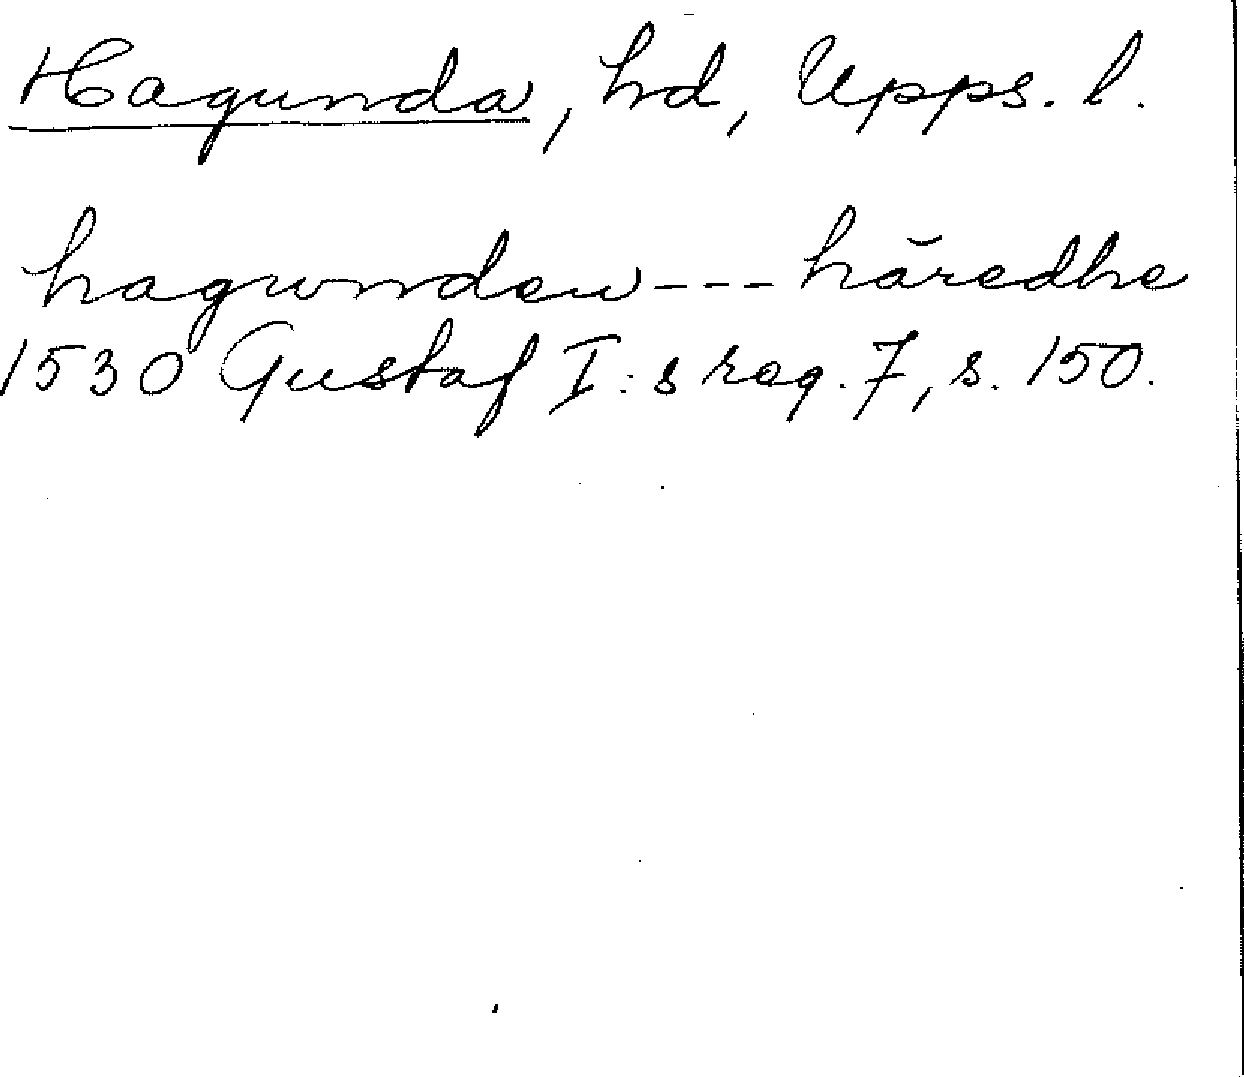 Hagunda, hd, Upps. l.
hagwndaw --- häredhe
1530 Gustaf I:s reg. 7, s. 150.